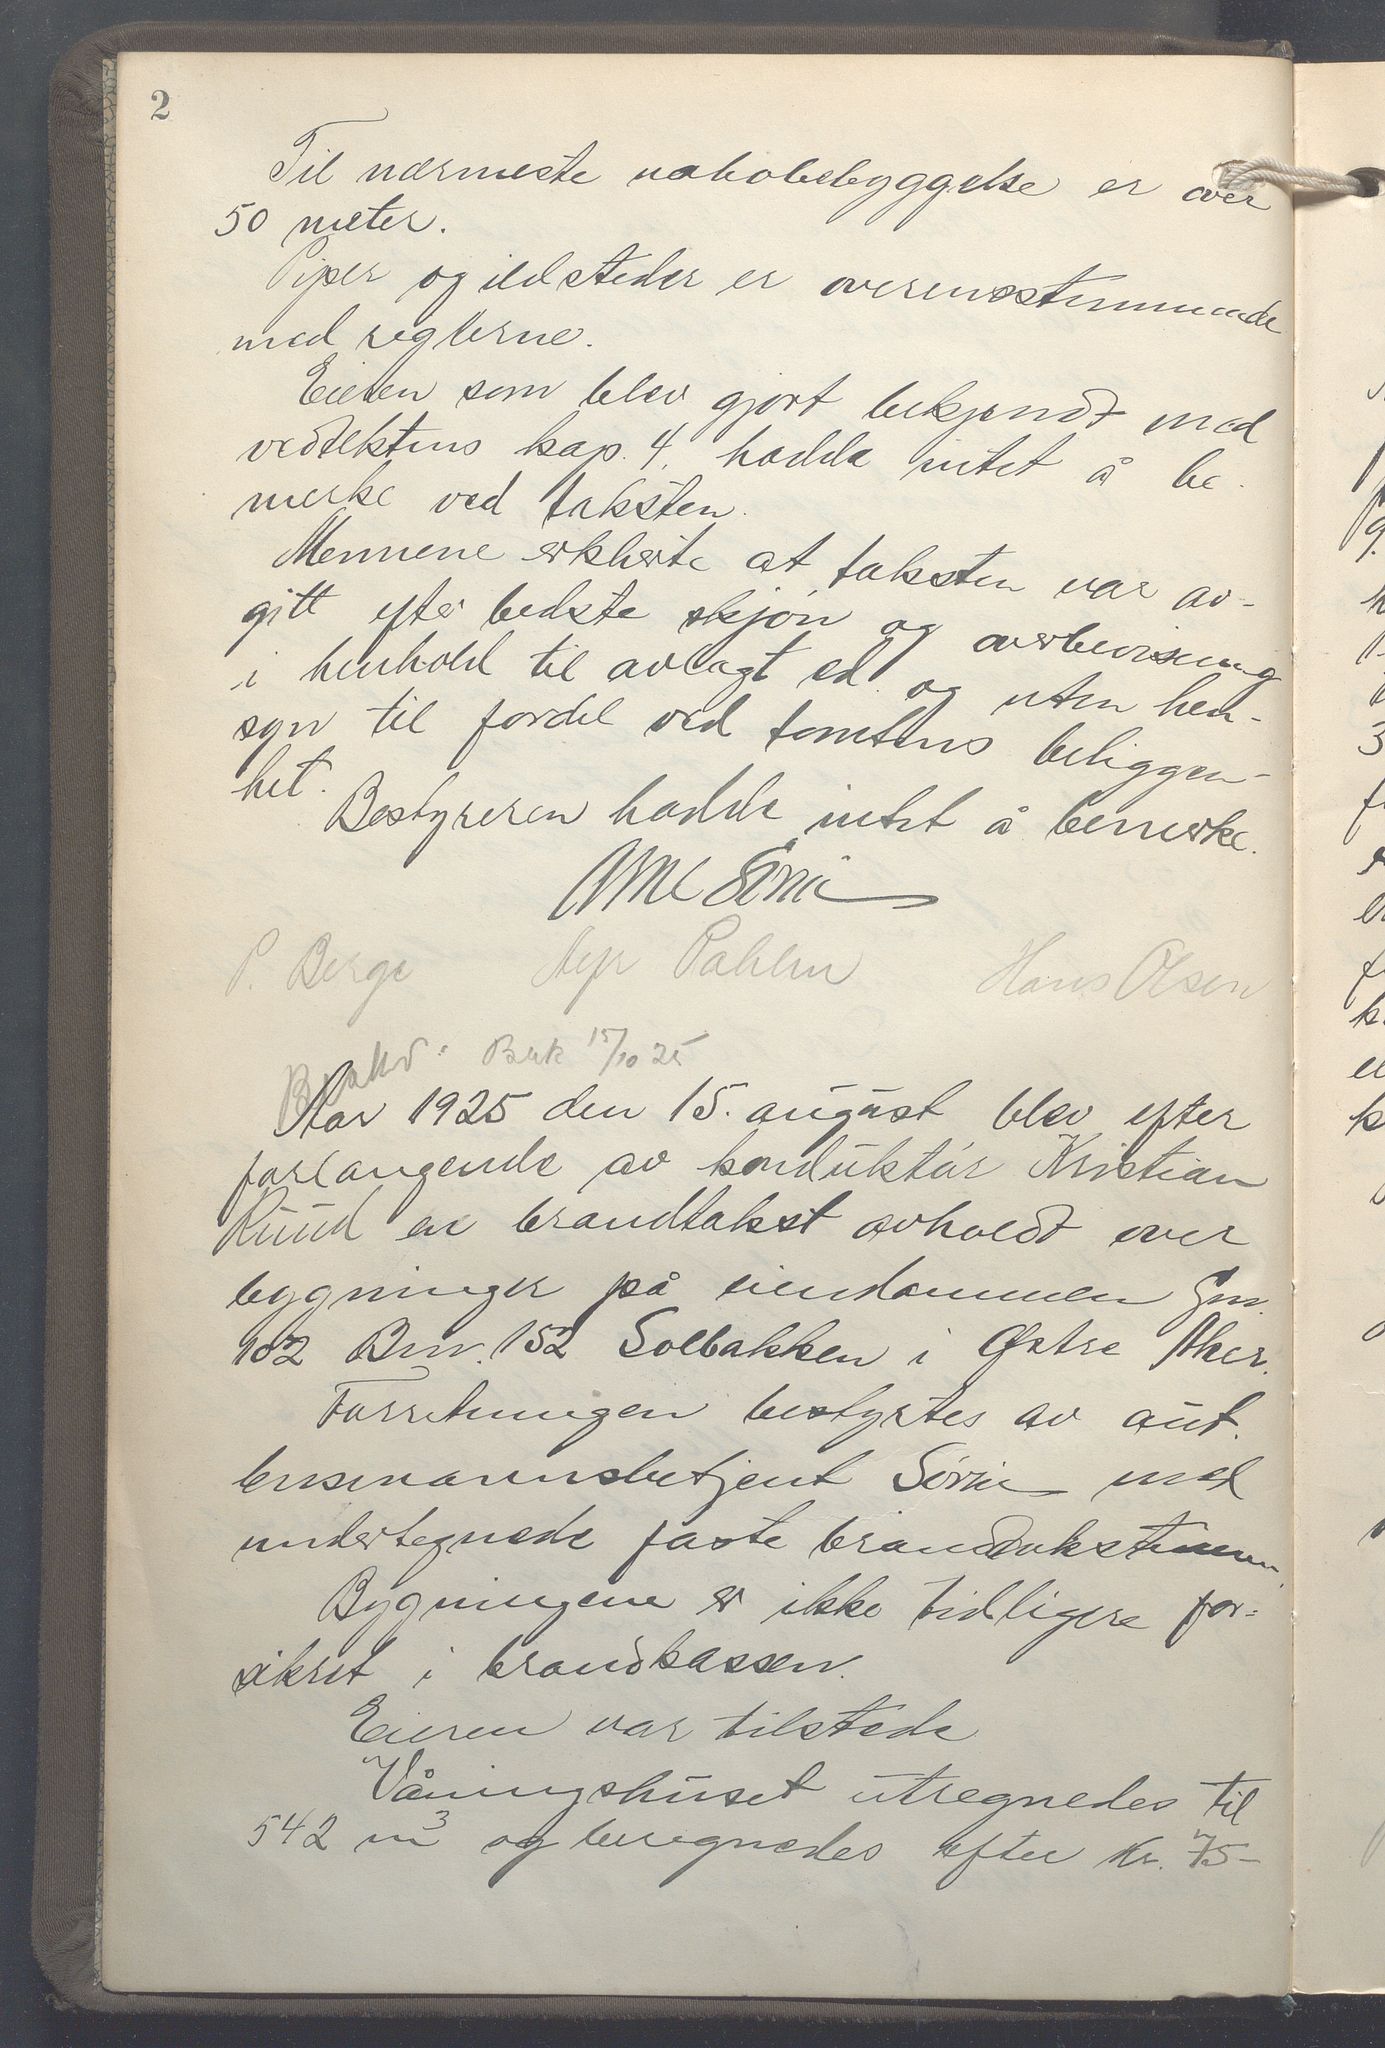 2
Til nærmeste nabobebyggelse er over
50 meter.
Piper og ildsteder er overensstemmende
med reglerne.
Eieren som blev gjort bekjendt med
vedtektens kap. 4. hadde intet å be-
merke ved taksten.
Mennene erklærte at taksten var av-
gitt efter bedste skjøn og overbevisning
i henhold til avlagt ed og uten hen-
syn til fordel ved tomtens beliggen-
het.
Bestyreren hadde intet å bemerke.
Arne Sørli
P. Berge Pahlm Hans Olsen
Betalt 15/10 25
Aar 1925 den 15. august blev efter
forlangende av konduktør Kristian
Ruud en brandtakst avholdt over
bygninger på eiendommen Gnr.
102 Bnr. 152 Solbakken i Østre Aker.
Forretningen bestyrtes av aut.
lensmannsbetjent Sørli med
undertegnede faste brandtakstmenn.
Bygningene er ikke tidligere for-
sikret i brandkassen.
Eieren var tilstede
Våningshuset utregnedes til
542 m3 og beregnedes efter kr. 75-